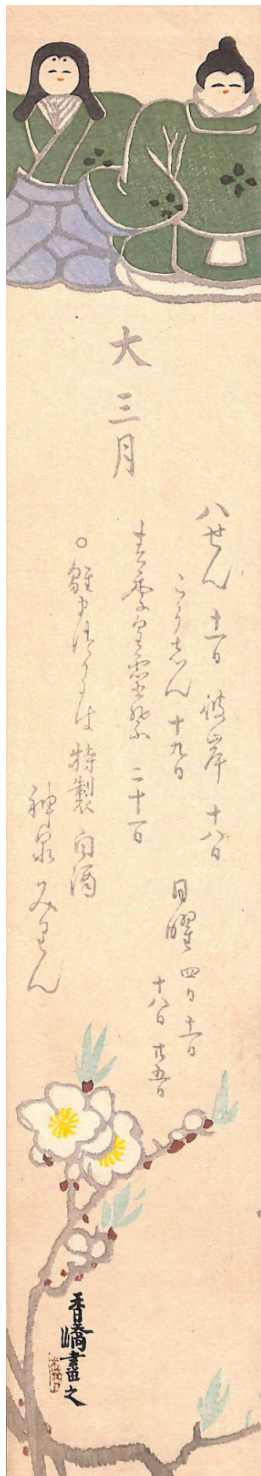 大 三月
八せん 十一日 彼岸 十八日
こう志ん 十九日
日曜 四日 十一日
十八日 廿五日
春季皇霊祭 二十一日
○雛 特製 白酒
神泉 みりん
香嶠畫之